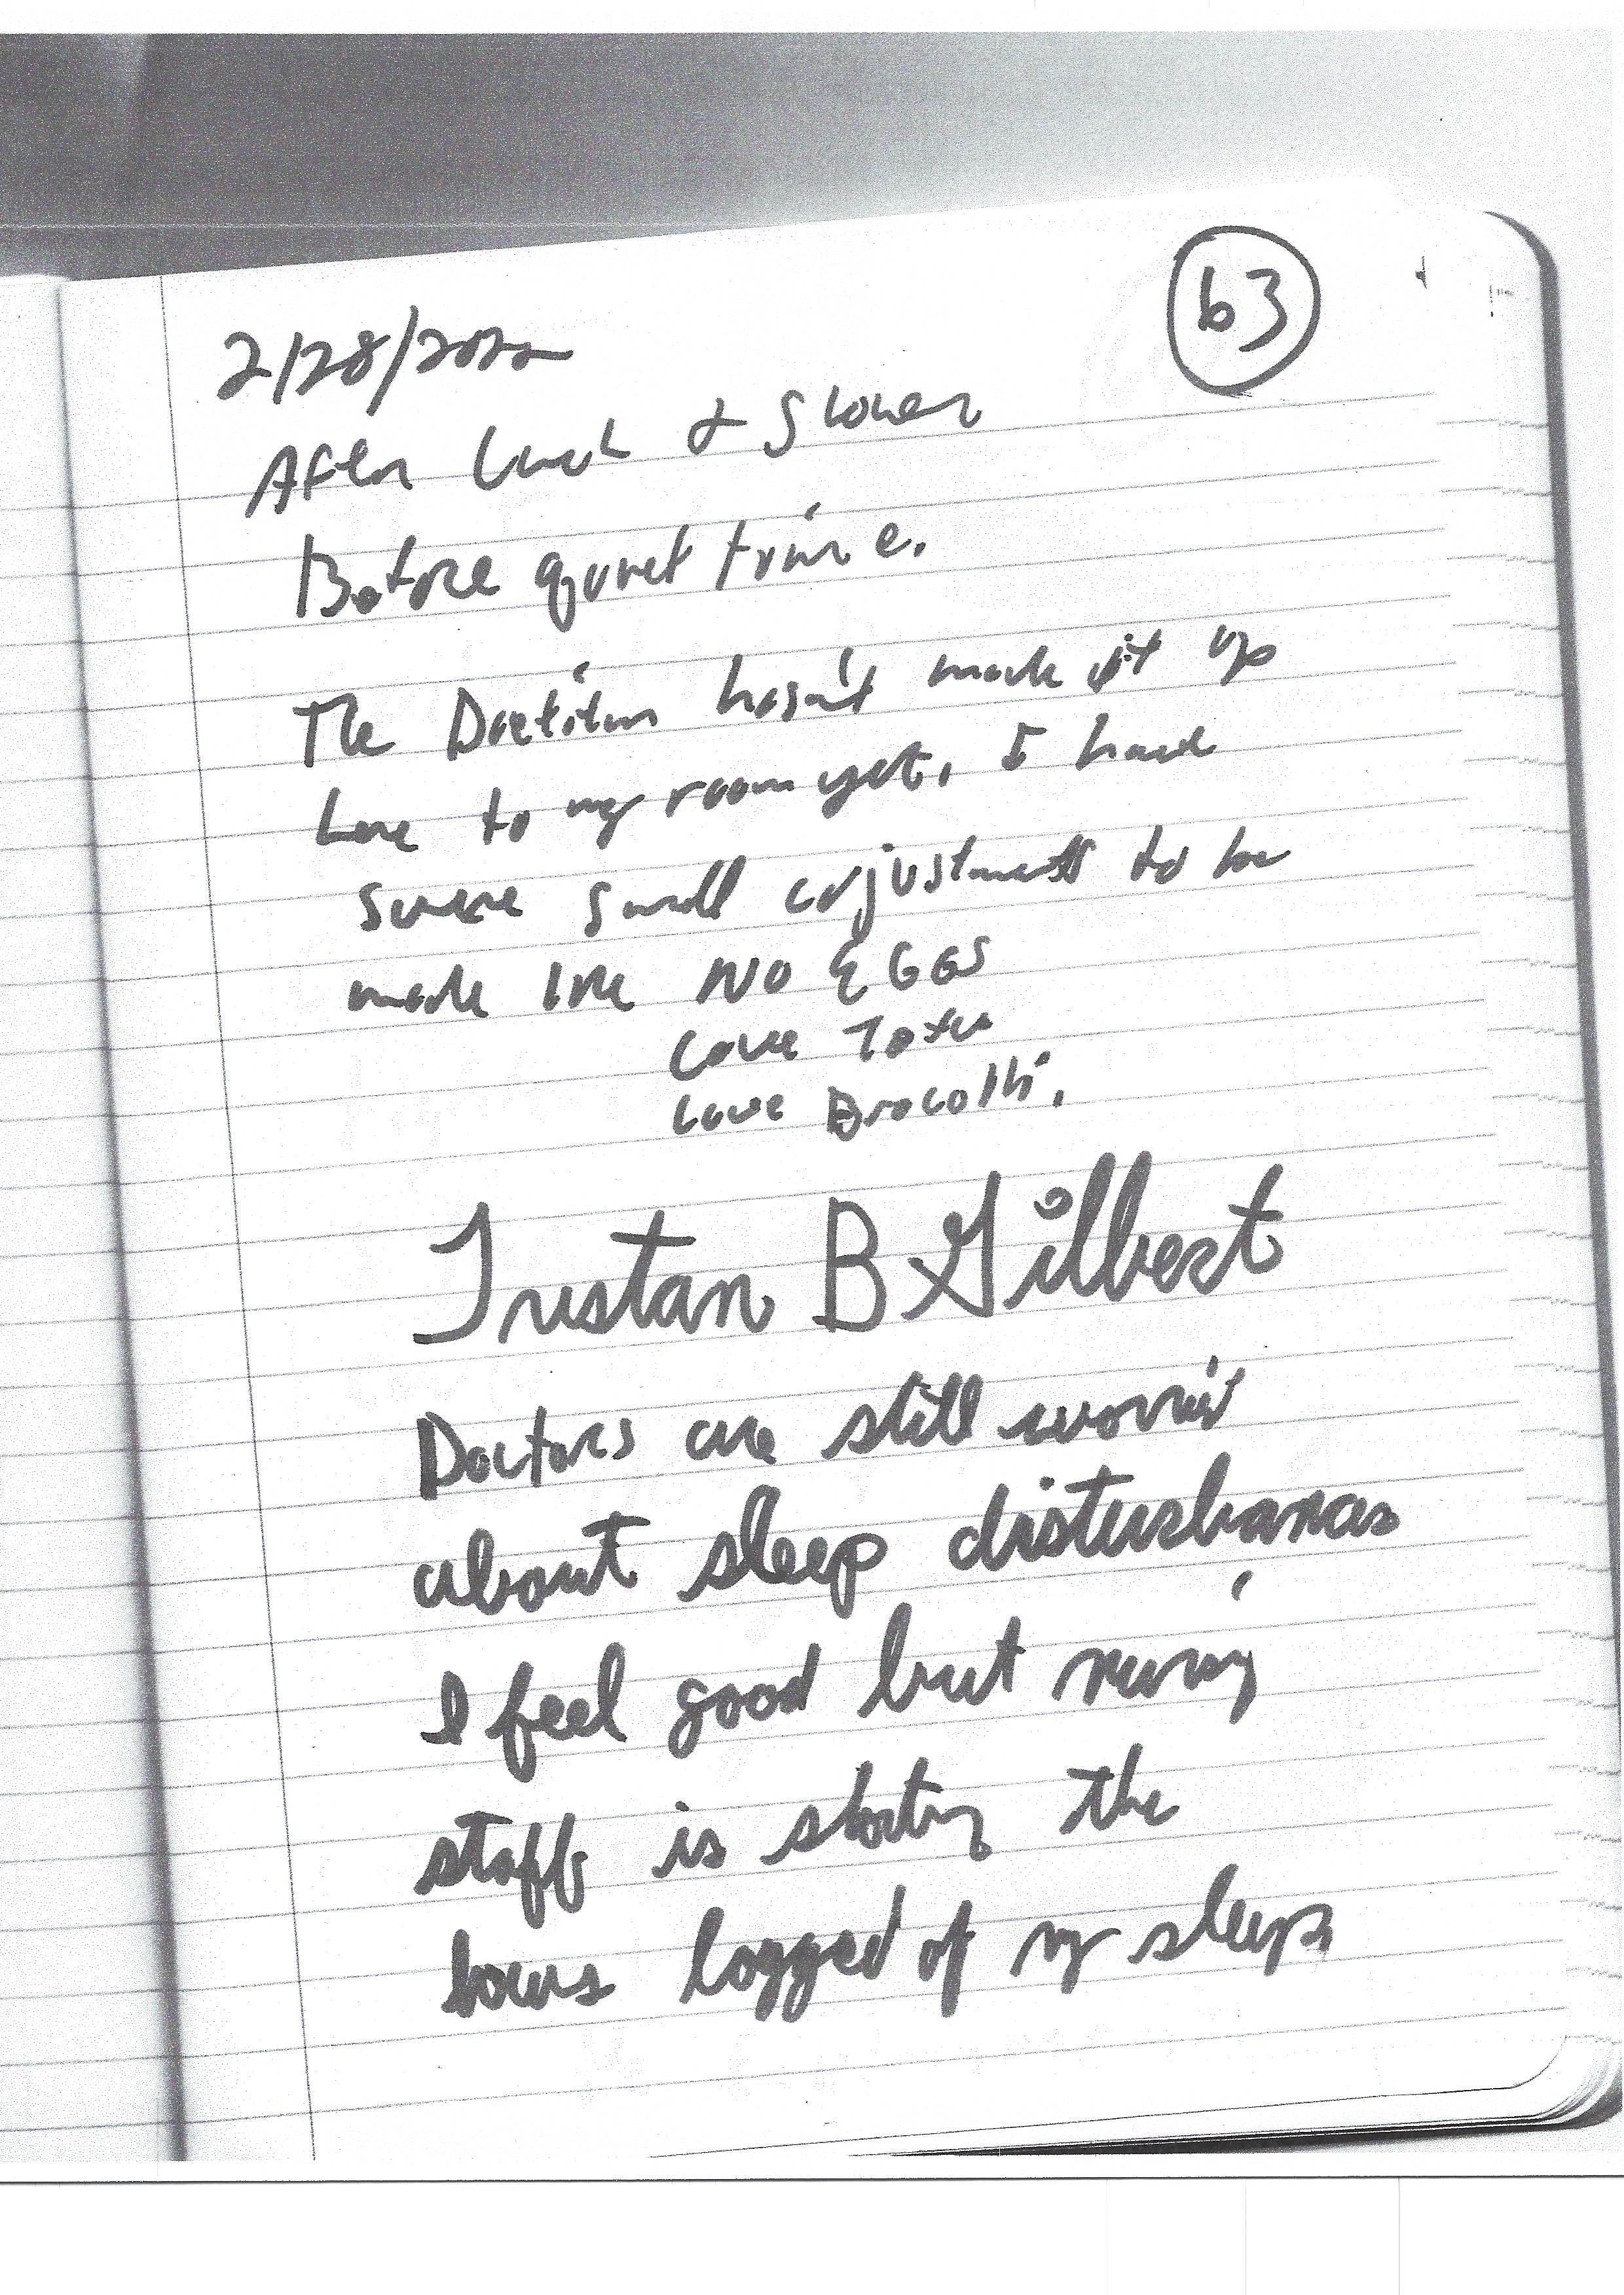 63
2/28/2022
After lunch & Shower
Before quiet time.
The Dietitian hasn't made it up
here to my room yet. I had
some small adjustments to be
made like NO EGGS
Love Tofu
Love Brocolli.
Tristan B Gilbert
Doctors are still worried
about sleep disturbances
I feel good but nursing
staff is starting the
hours logged of my sleep